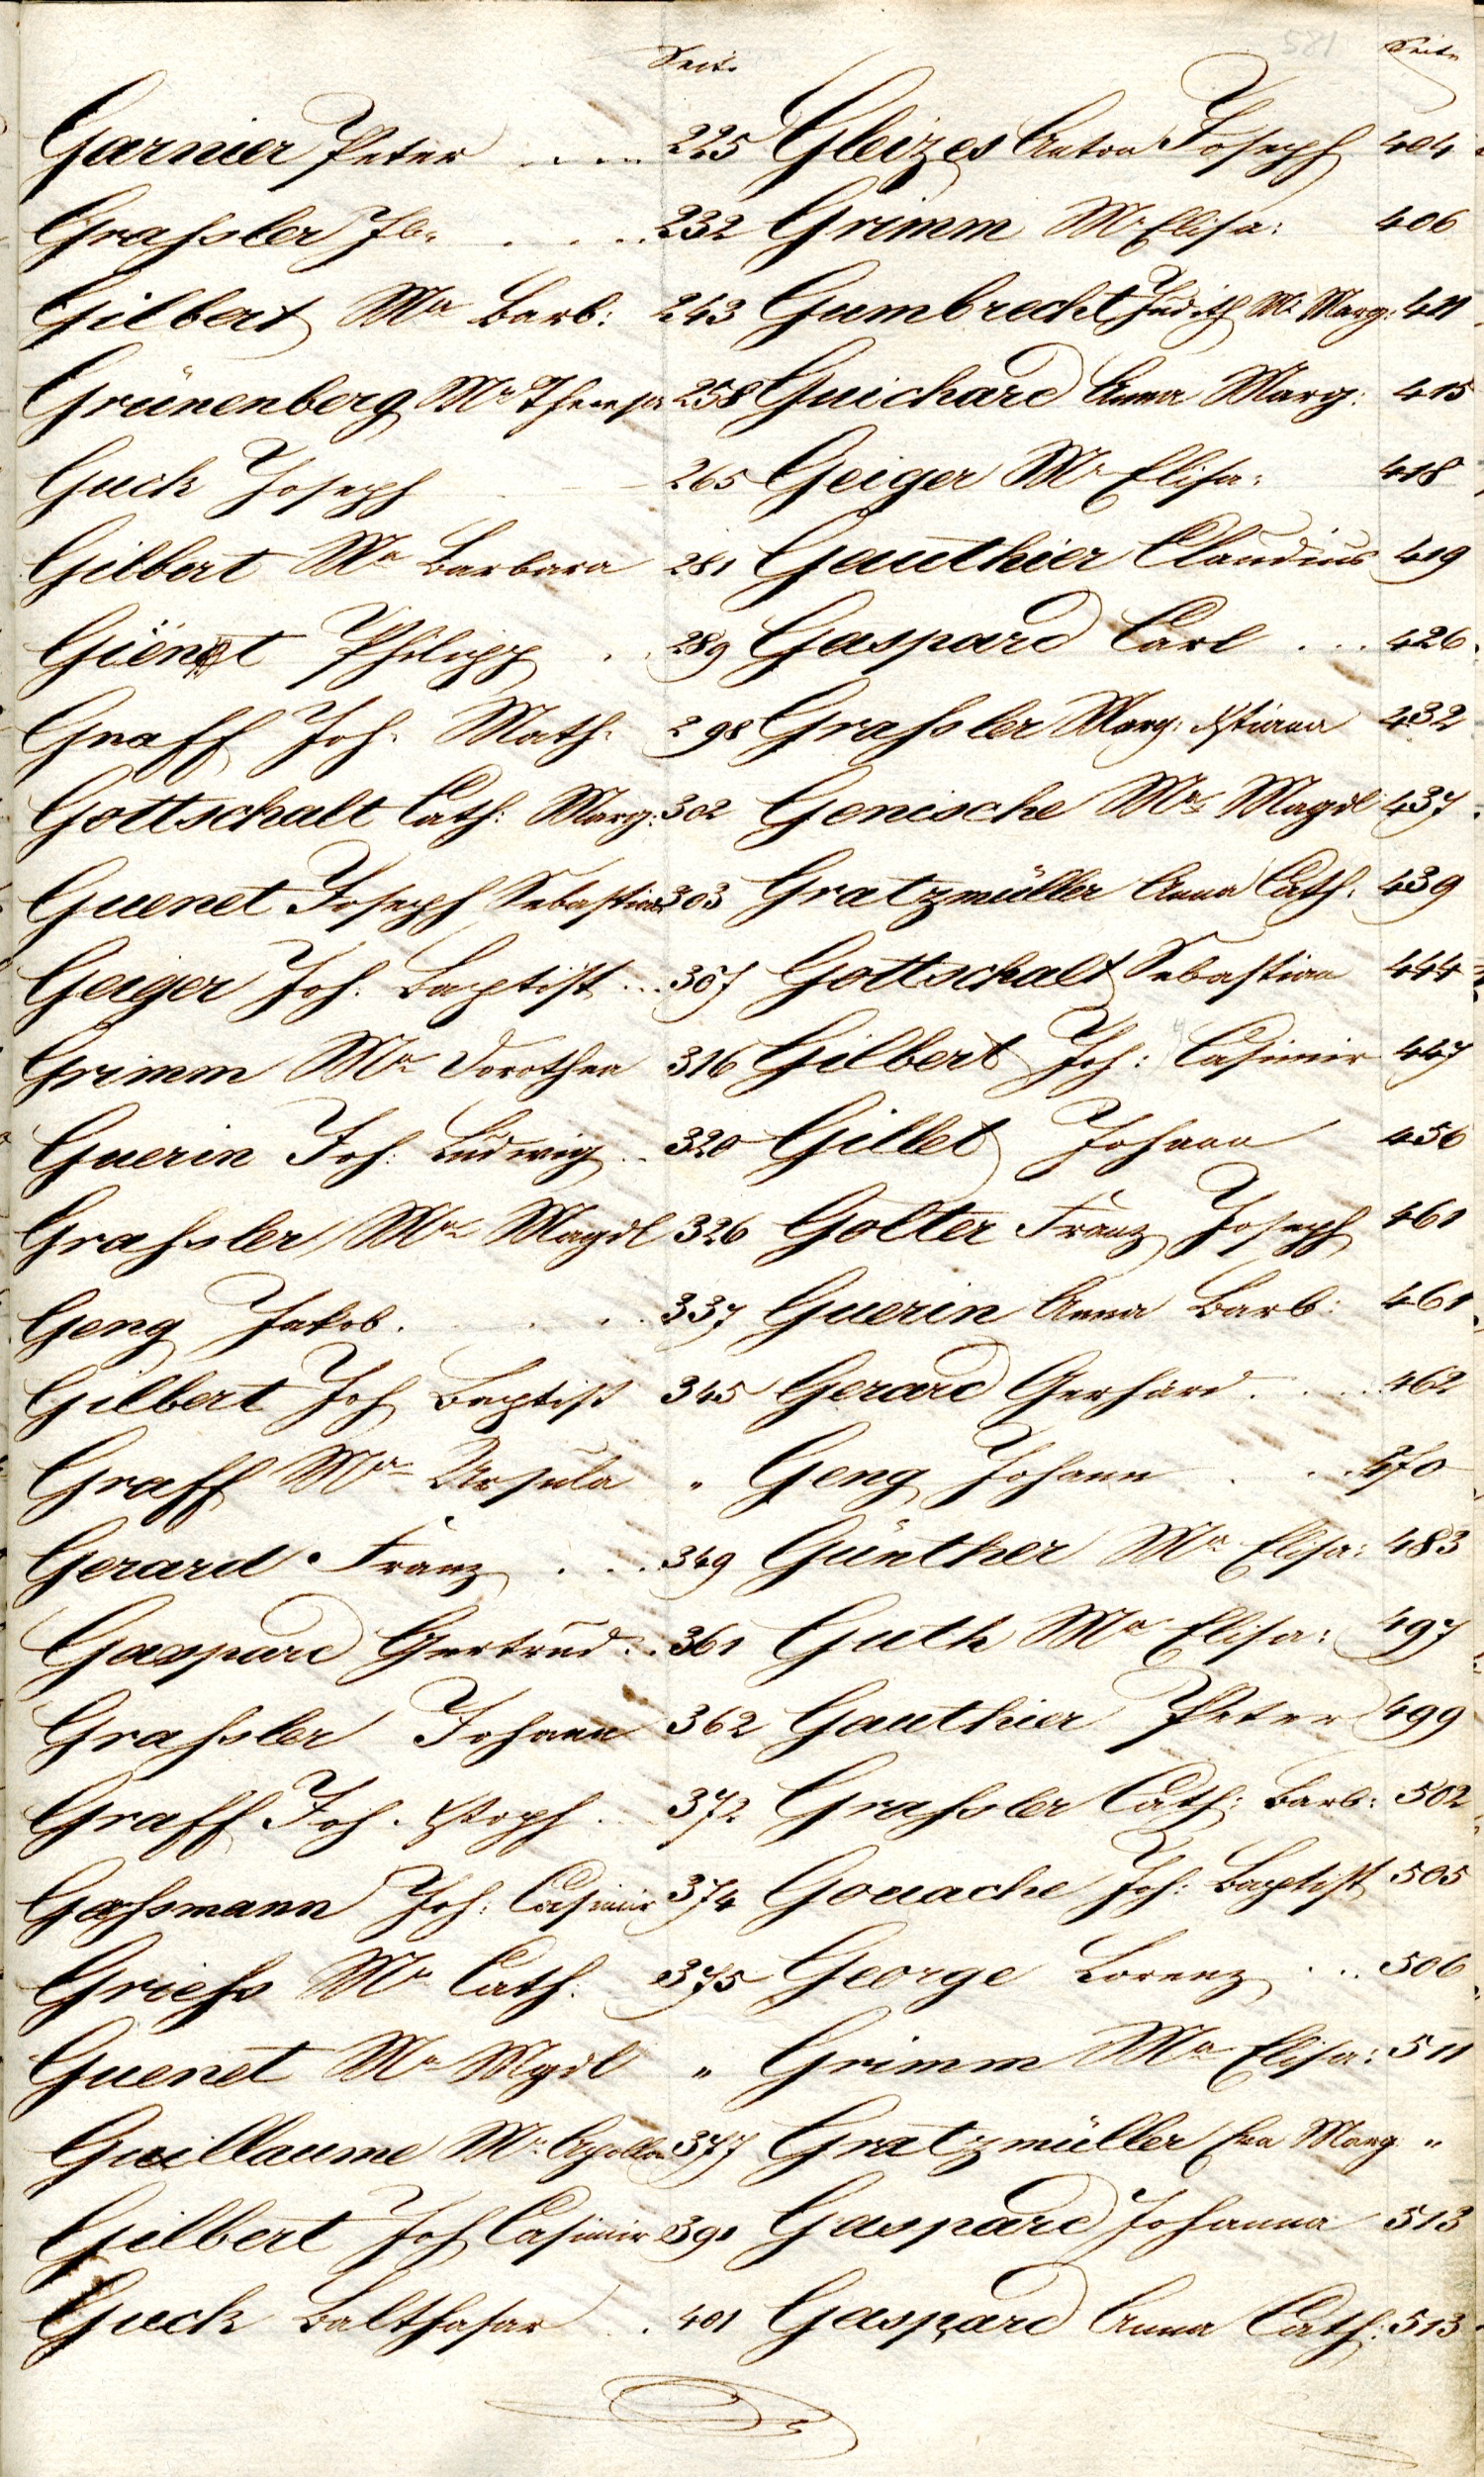 Seite
581
Seite
Garnier Peter .... 225
Graßler Jb. .... 232
Gilbert Ma Barb: 243
Grünenberg Ma Theresia 258
Guck Joseph 265
Gilbert Ma Barbara 281
Giënet Philipp .. 289
Graff Joh. Math. 298
Gottschalt Cath: Marg: 302
Guenet Joseph Sebastian 303
Geiger Joh. Baptist ... 307
Grimm Ma Dorothea 316
Guerin Joh: Ludwig .. 320
Graßler Ma Magdl 326
Geng Jakob .... 337
Gilbert Joh Baptist 345
Graff Ma Ursula "
Gerard Franz ... 349
Gaspard Gertrud .. 361
Graßler Johann 362
Graff Joh. Xstoph . 372
Gaßmann Joh: Casimir 374
Grieß Ma Cath. 375
Guenet Ma Mgdl "
Guillaume Ma Apollon 377
Gilbert Joh Casimir 391
Guck Balthasar .. 401
Gleizes Anton Joseph 404
Grimm Ma Elisa: 406
Gumbrecht Judith Ma Marg: 411
Guichard Anna Marg: 415
Geiger Ma Elisa: 418
Gauthier Claudius 419
Gaspard Carl ... 426
Graßler Marg: Xstiana 432
Genische Ma Magdl 437
Gratzmüller Anna Cath: 439
Gottschalt Sebastian 444
Gilbert Joh: Casimir 447
Gillet Johann 456
Golter Franz Joseph 461
Guerin Anna Barb: 461
Gerard Gerhard .... 462
Geng Johann ... 470
Günther Ma Elisa: 483
Guth Ma Elisa: 497
Gauthier Peter 499
Graßler Cath: Barb: 502
Gouache Joh: Baptist 505
George Lorenz ... 506
Grimm Ma Elisa: 511
Gratzmüller Eva Marg "
Gaspard Johanna 513
Gaspard Anna Cath: 513